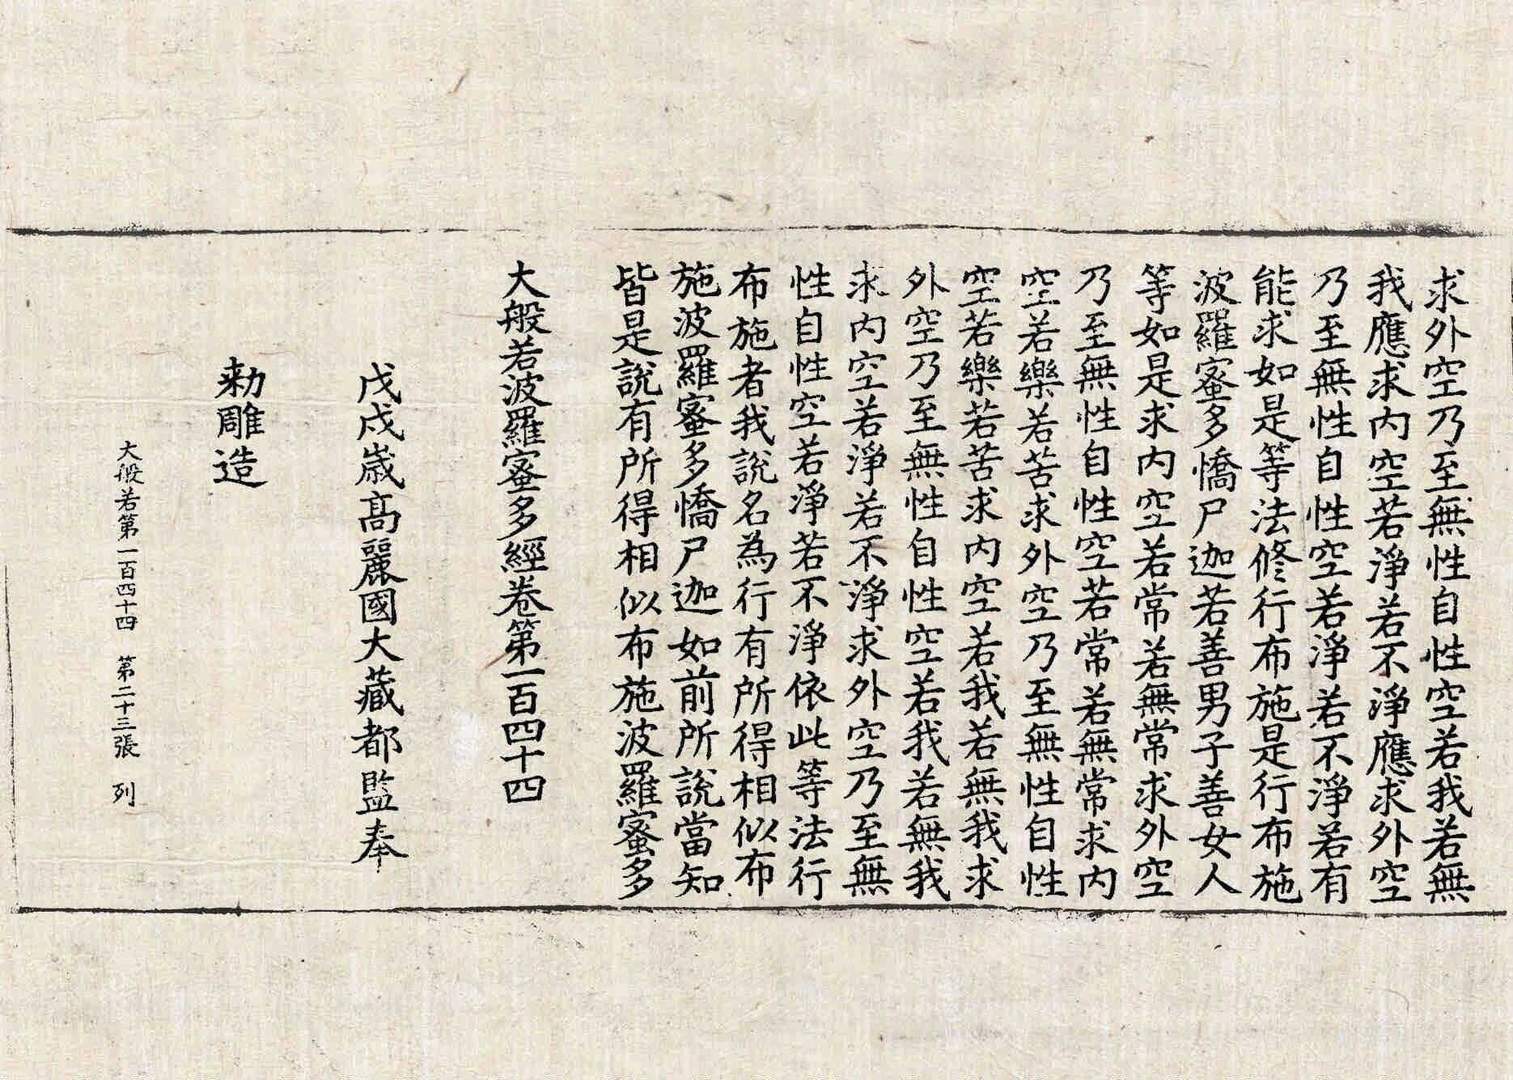 求外空乃至無性自性空若我若無
我應求内空若淨若不淨應求外空
乃至無性自性空若淨若不淨若有
能求如是等法修行布施是行布施
波羅蜜多憍尸迦若善男子善女人
等如是求内空若常若無常求外空
乃至無性自性空若常若無常求内
空若樂若苦求外空乃至無性自性
空若樂若苦求内空若我若無我求
外空乃至無性自性空若我若無我
求内空若淨若不淨求外空乃至無
性自性空若淨若不淨依此等法行
布施者我說名為行有所得相似布
施波羅蜜多憍尸迦如前所說當知
皆是說有所得相似布施波羅蜜多
大般若波羅蜜多經卷第一百四十四
戊戌歲高麗國大藏都監奉
勑雕造
大般若第一百四十四 第二十三張 列